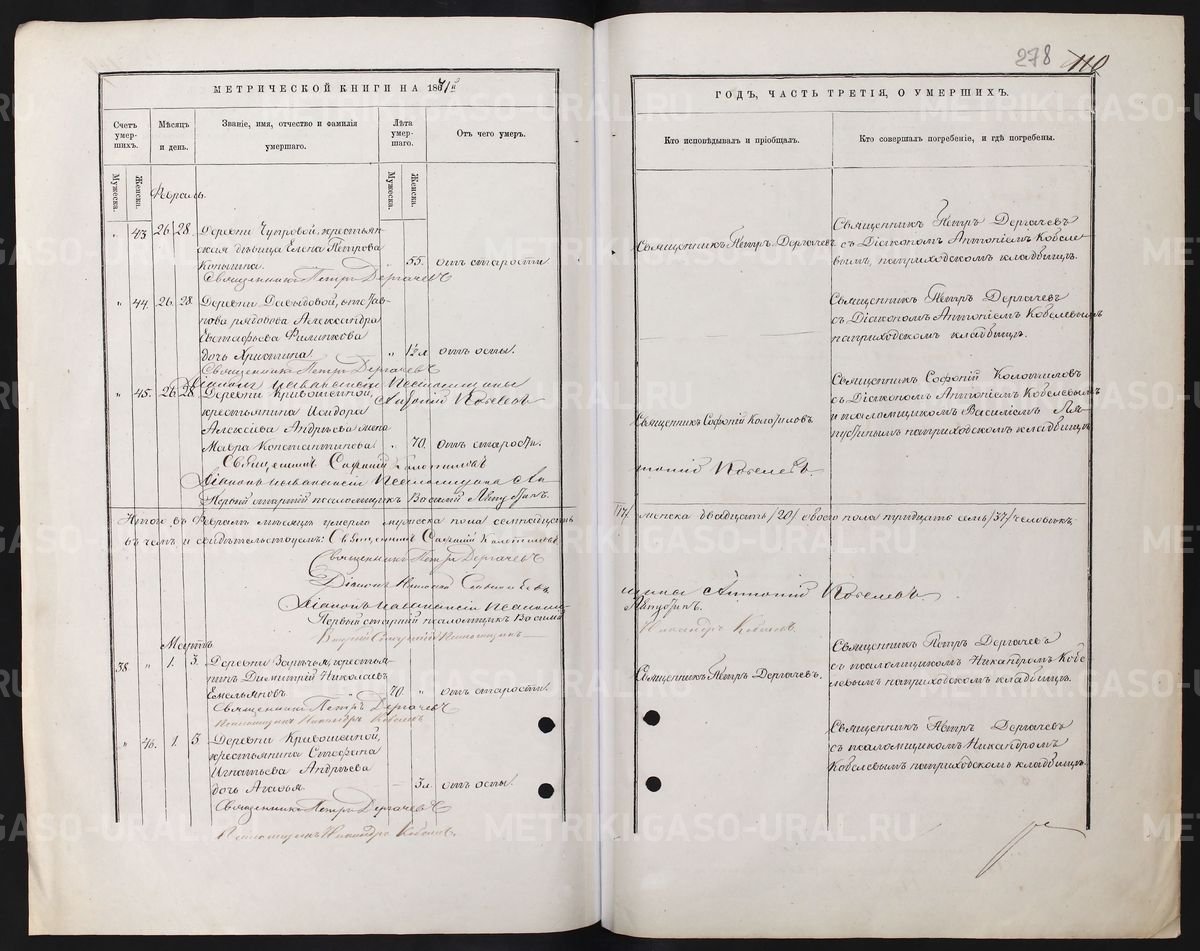 278
110
МЕТРИЧЕСКОЙ КНИГИ НА 1871й
Счетъ умер-шихъ.
Мѣсяцъ и день.
Званіе, имя, отчество и фамилія умершаго.
Лѣта умер-шаго.
Отъ чего умеръ.
Мужеска.
Женска.
Мужеска.
Женска.
Февраль.
" 43 26 28 Деревни крестьян-
ская дѣвица Елена Петрова
Копыгина. 55. отъ старости
Священникъ Петръ Дергачевъ
" 44. 26. 28. Деревни Давыдовой, отстав-
нова рядовова Александра
Евстафьева Филипкова
дочь Христина " 1½ м отъ оспы.
Священникъ Петръ Дергачевъ
Антоній Кобелевъ
" 45. 26. 28. Деревни Кривошеиной,
крестьянина Исидора
Алексіева Андрѣева жена
Мавра Константинова " 70. отъ старости.
Священникъ Софоній Колотиловъ
Первый старшій псаломщикъ Василій Лапустинъ.
Итого въ Февралѣ мѣсяцѣ умерло мужеска пола семнадцать
въ чемъ и свидѣтельствуемъ: Священникъ Софоній Колотиловъ
Священникъ Петръ Дергачевъ
Первый старшій псаломщикъ Василій
Мартъ
38. " 1. 3. Деревни Зарѣчья, крестья-
нинъ Димитрій Николаевъ
Емельяновъ 70. " отъ старости.
Священникъ Петръ Дергачевъ
Псаломщикъ Никандръ Кобелевъ
" 46. 1. 3 Деревни Кривошеиной,
крестьянина Стефана
Игнатьева Андрѣева
дочь Агафья. — 3 м. отъ оспы.
Священникъ Петръ Дергачевъ
Псаломщикъ Никандръ Кобелевъ.
ГОДЪ, ЧАСТЬ ТРЕТІЯ, О УМЕРШИХЪ.
Кто исповѣдывалъ и пріобщалъ.
Кто совершалъ погребеніе, и гдѣ погребены.
Священникъ Петръ Дергачевъ.
Священникъ Петръ Дергачевъ
съ Діакономъ Антоніемъ Кобеле-
вымъ, на приходскомъ кладбищѣ.
Священникъ Петръ Дергачевъ
съ Діакономъ Антоніемъ Кобелевымъ
на приходскомъ кладбищѣ.
Священникъ Софоній Колотиловъ.
Священникъ Софоній Колотиловъ
съ Діакономъ Антоніемъ Кобелевымъ
и псаломщикомъ Василіемъ Ла-
пустинымъ на приходскомъ кладбищѣ
тоній Кобелевъ
/17/ женска двадцать /20/ обоего пола тридцать семь /37/ человѣкъ.
Антоній Кобелевъ.
Лапустинъ.
Никандръ Кобелевъ.
Священникъ Петръ Дергачевъ.
Священникъ Петръ Дергачевъ
съ псаломщикомъ Никандромъ Кобе-
левымъ на приходскомъ кладбищѣ.
Священникъ Петръ Дергачевъ
съ псаломщикомъ Никандромъ
Кобелевымъ на приходскомъ кладбищѣ.
METRIKI.GASO-URAL.RU